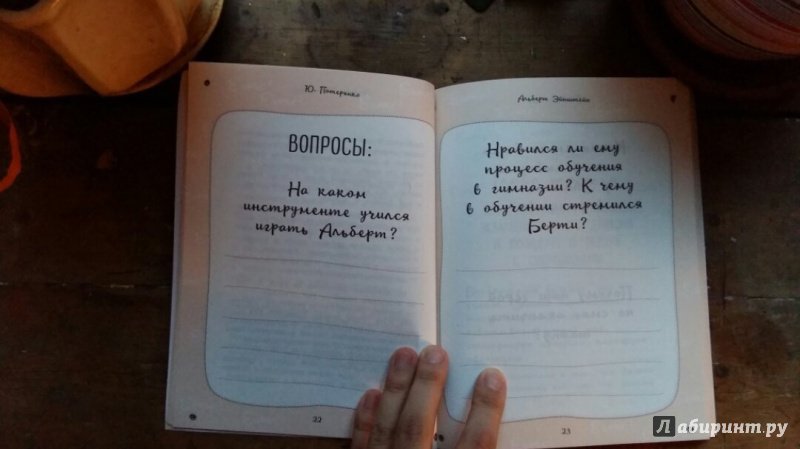 Ю. Потерянко
ВОПРОСЫ:
На каком
инструменте учился
играть Альберт?
22
Альберт Эйнштейн
Нравился ли ему
процесс обучения
в гимназии? К чему
в обучении стремился
Берти?
23
Лабиринт.ру